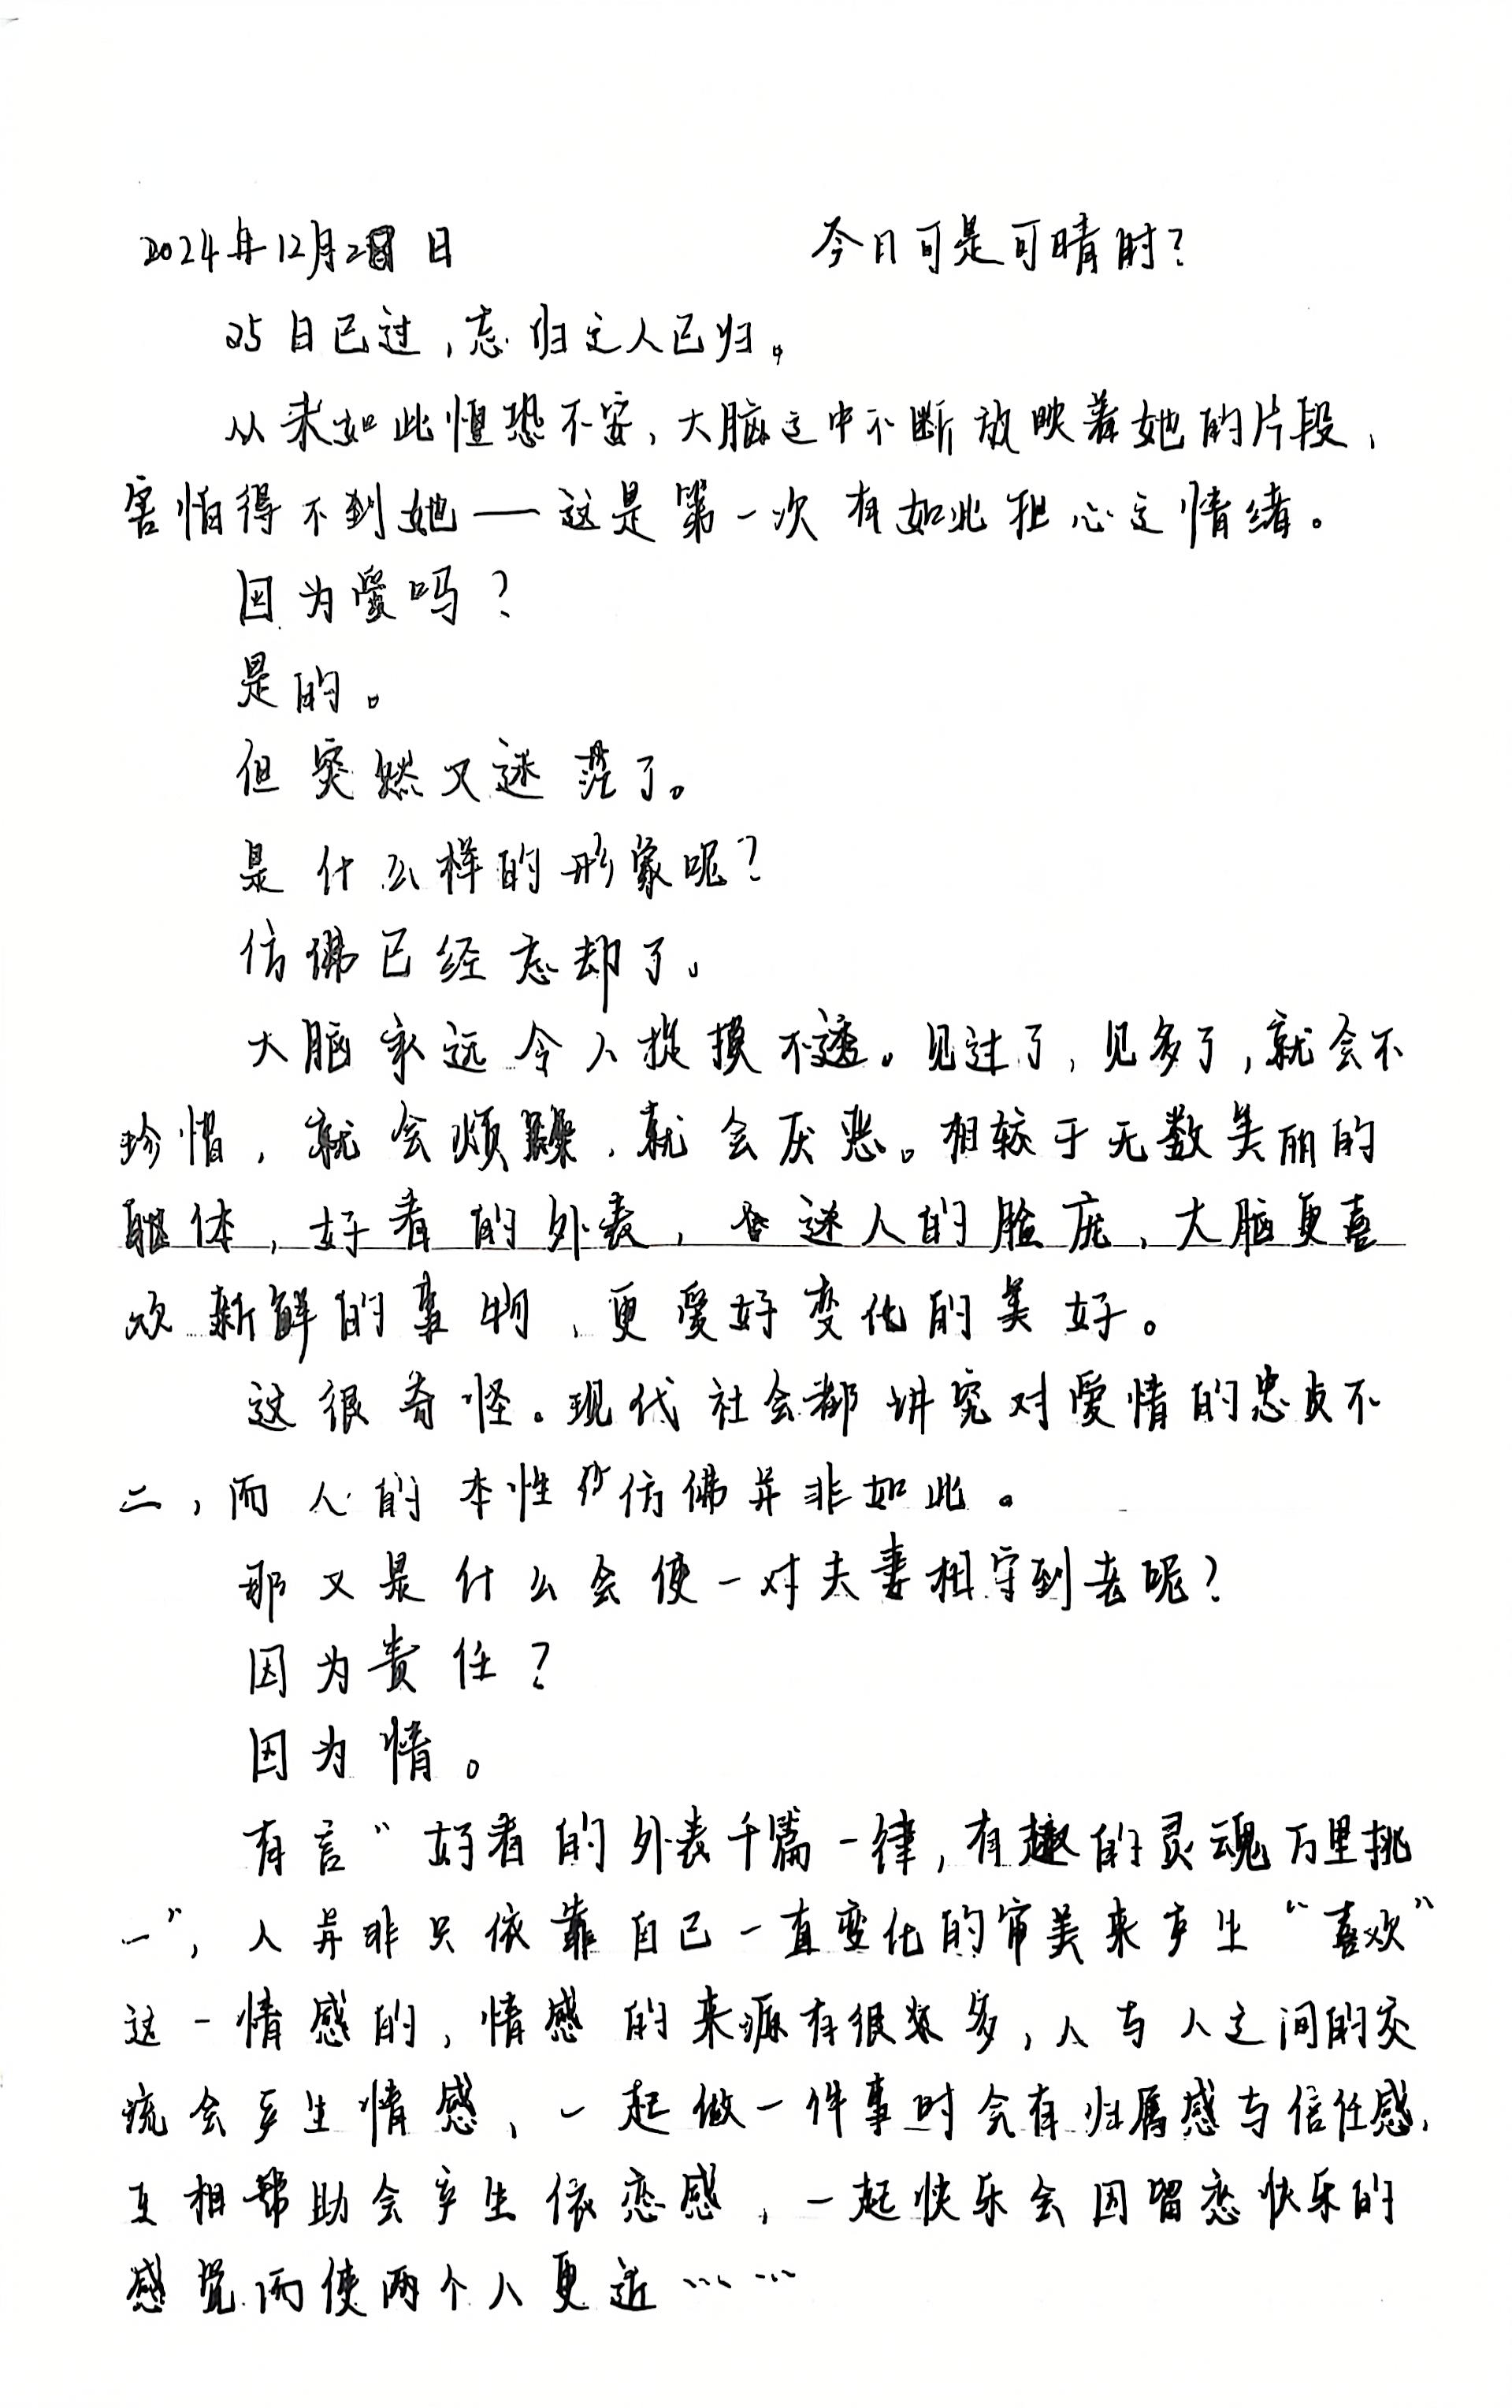 2024年12月2日
今日可是可晴时?
25日已过,忘归之人已归。
从未如此惶恐不安,大脑之中不断放映着她的片段,
害怕得不到她——这是第一次有如此担心之情绪。
因为爱吗?
是的。
但突然又迷茫了。
是什么样的形象呢?
仿佛已经忘却了。
大脑永远令人捉摸不透。见过了,见多了,就会不
珍惜,就会烦躁,就会厌恶。相较于无数美丽的
躯体,好看的外表,迷人的脸庞,大脑更喜
欢新鲜的事物,更爱好变化的美好。
这很奇怪。现代社会都讲究对爱情的忠贞不
二,而人的本性仿佛并非如此。
那又是什么会使一对夫妻相守到老呢?
因为责任?
因为情。
有言"好看的外表千篇一律,有趣的灵魂万里挑
一",人并非只依靠自己一直变化的审美来产生"喜欢"
这一情感的,情感的来源有很多,人与人之间的交
流会产生情感,一起做一件事时会有归属感与信任感,
互相帮助会产生依恋感,一起快乐会因留恋快乐的
感觉而使两个人更近……